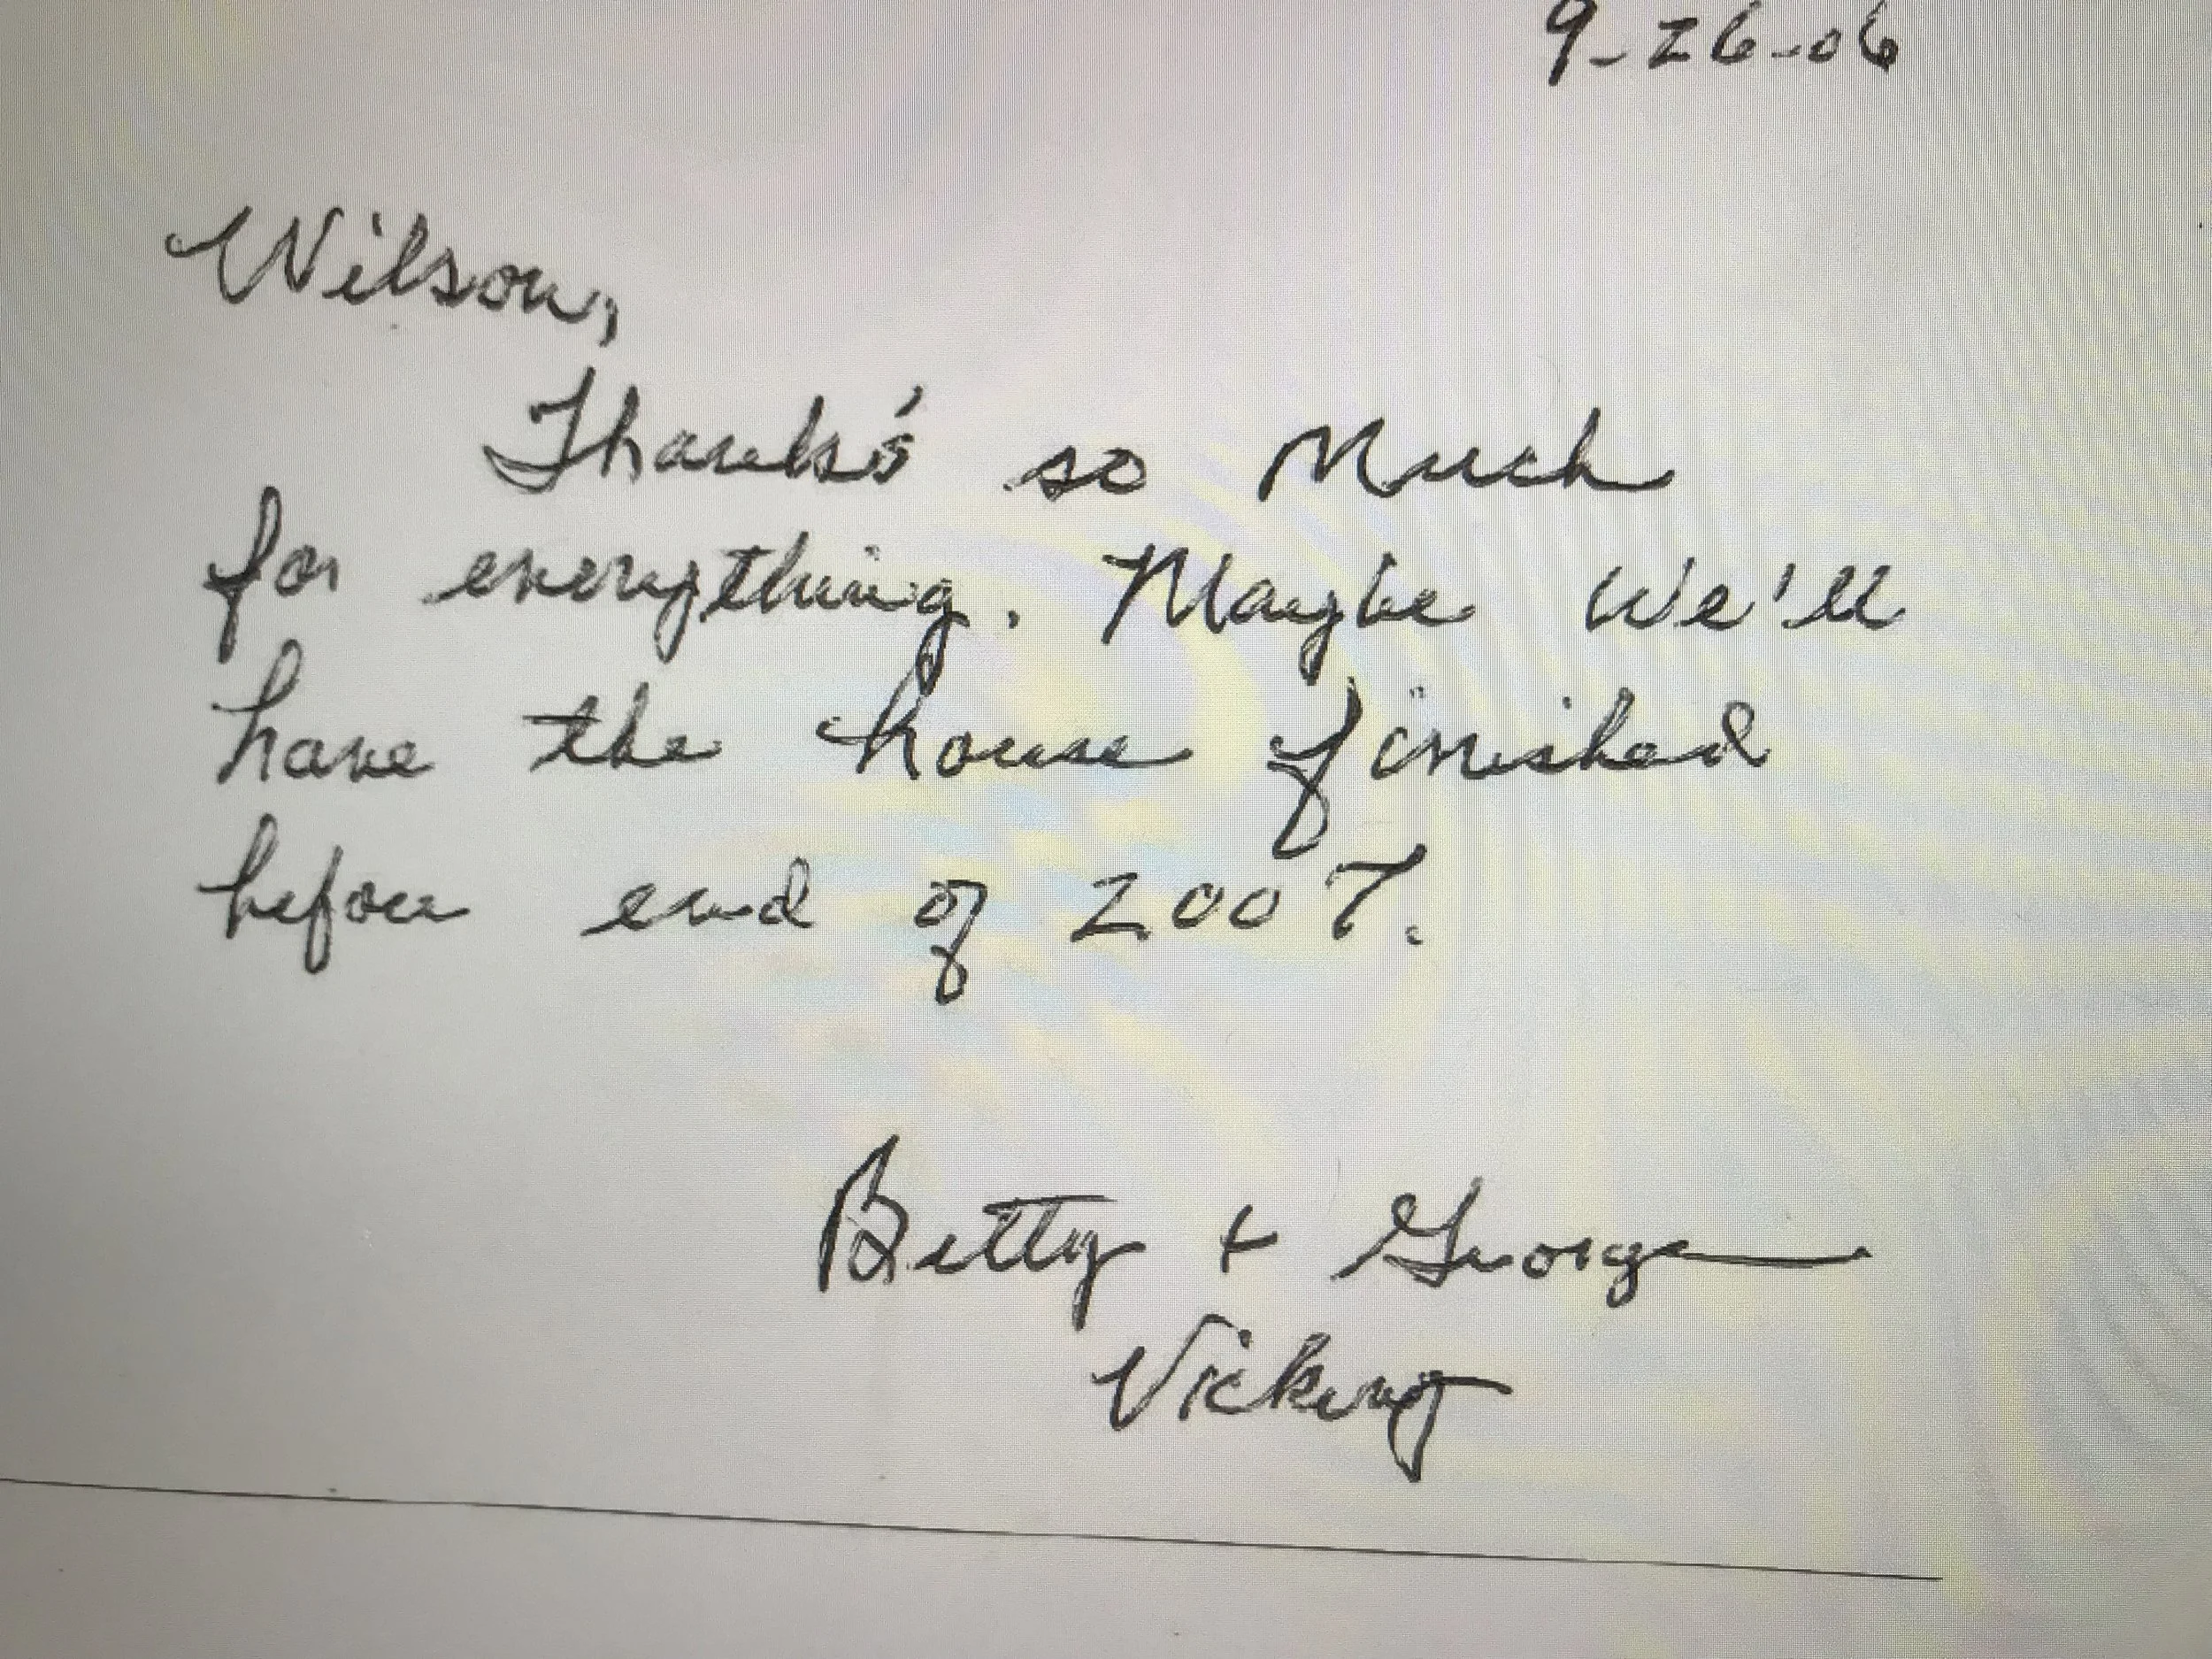 9-26-06
Wilson,
Thanks' so Much
for everything. Maybe We'll
have the house finished
before end of 2007.
Betty + George
Vickery